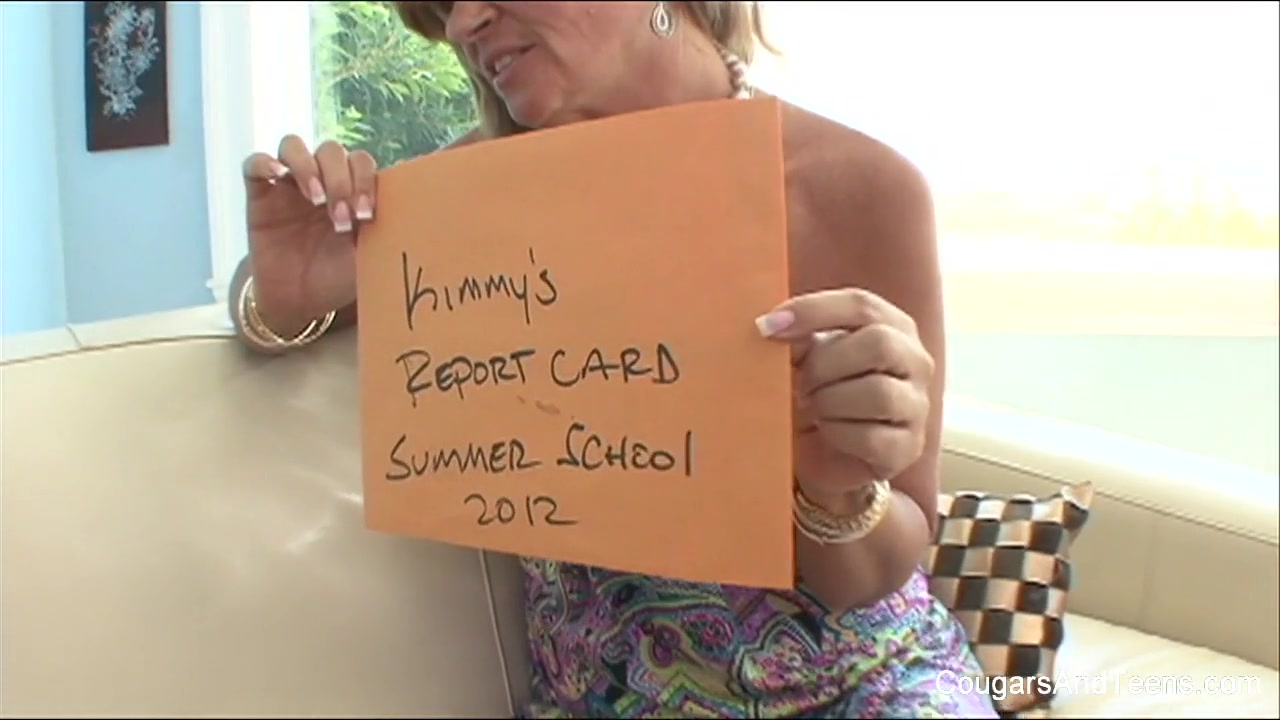 Kimmy's
REPORT CARD
SUMMER SCHOOL
2012
CougarsAndTeens.com